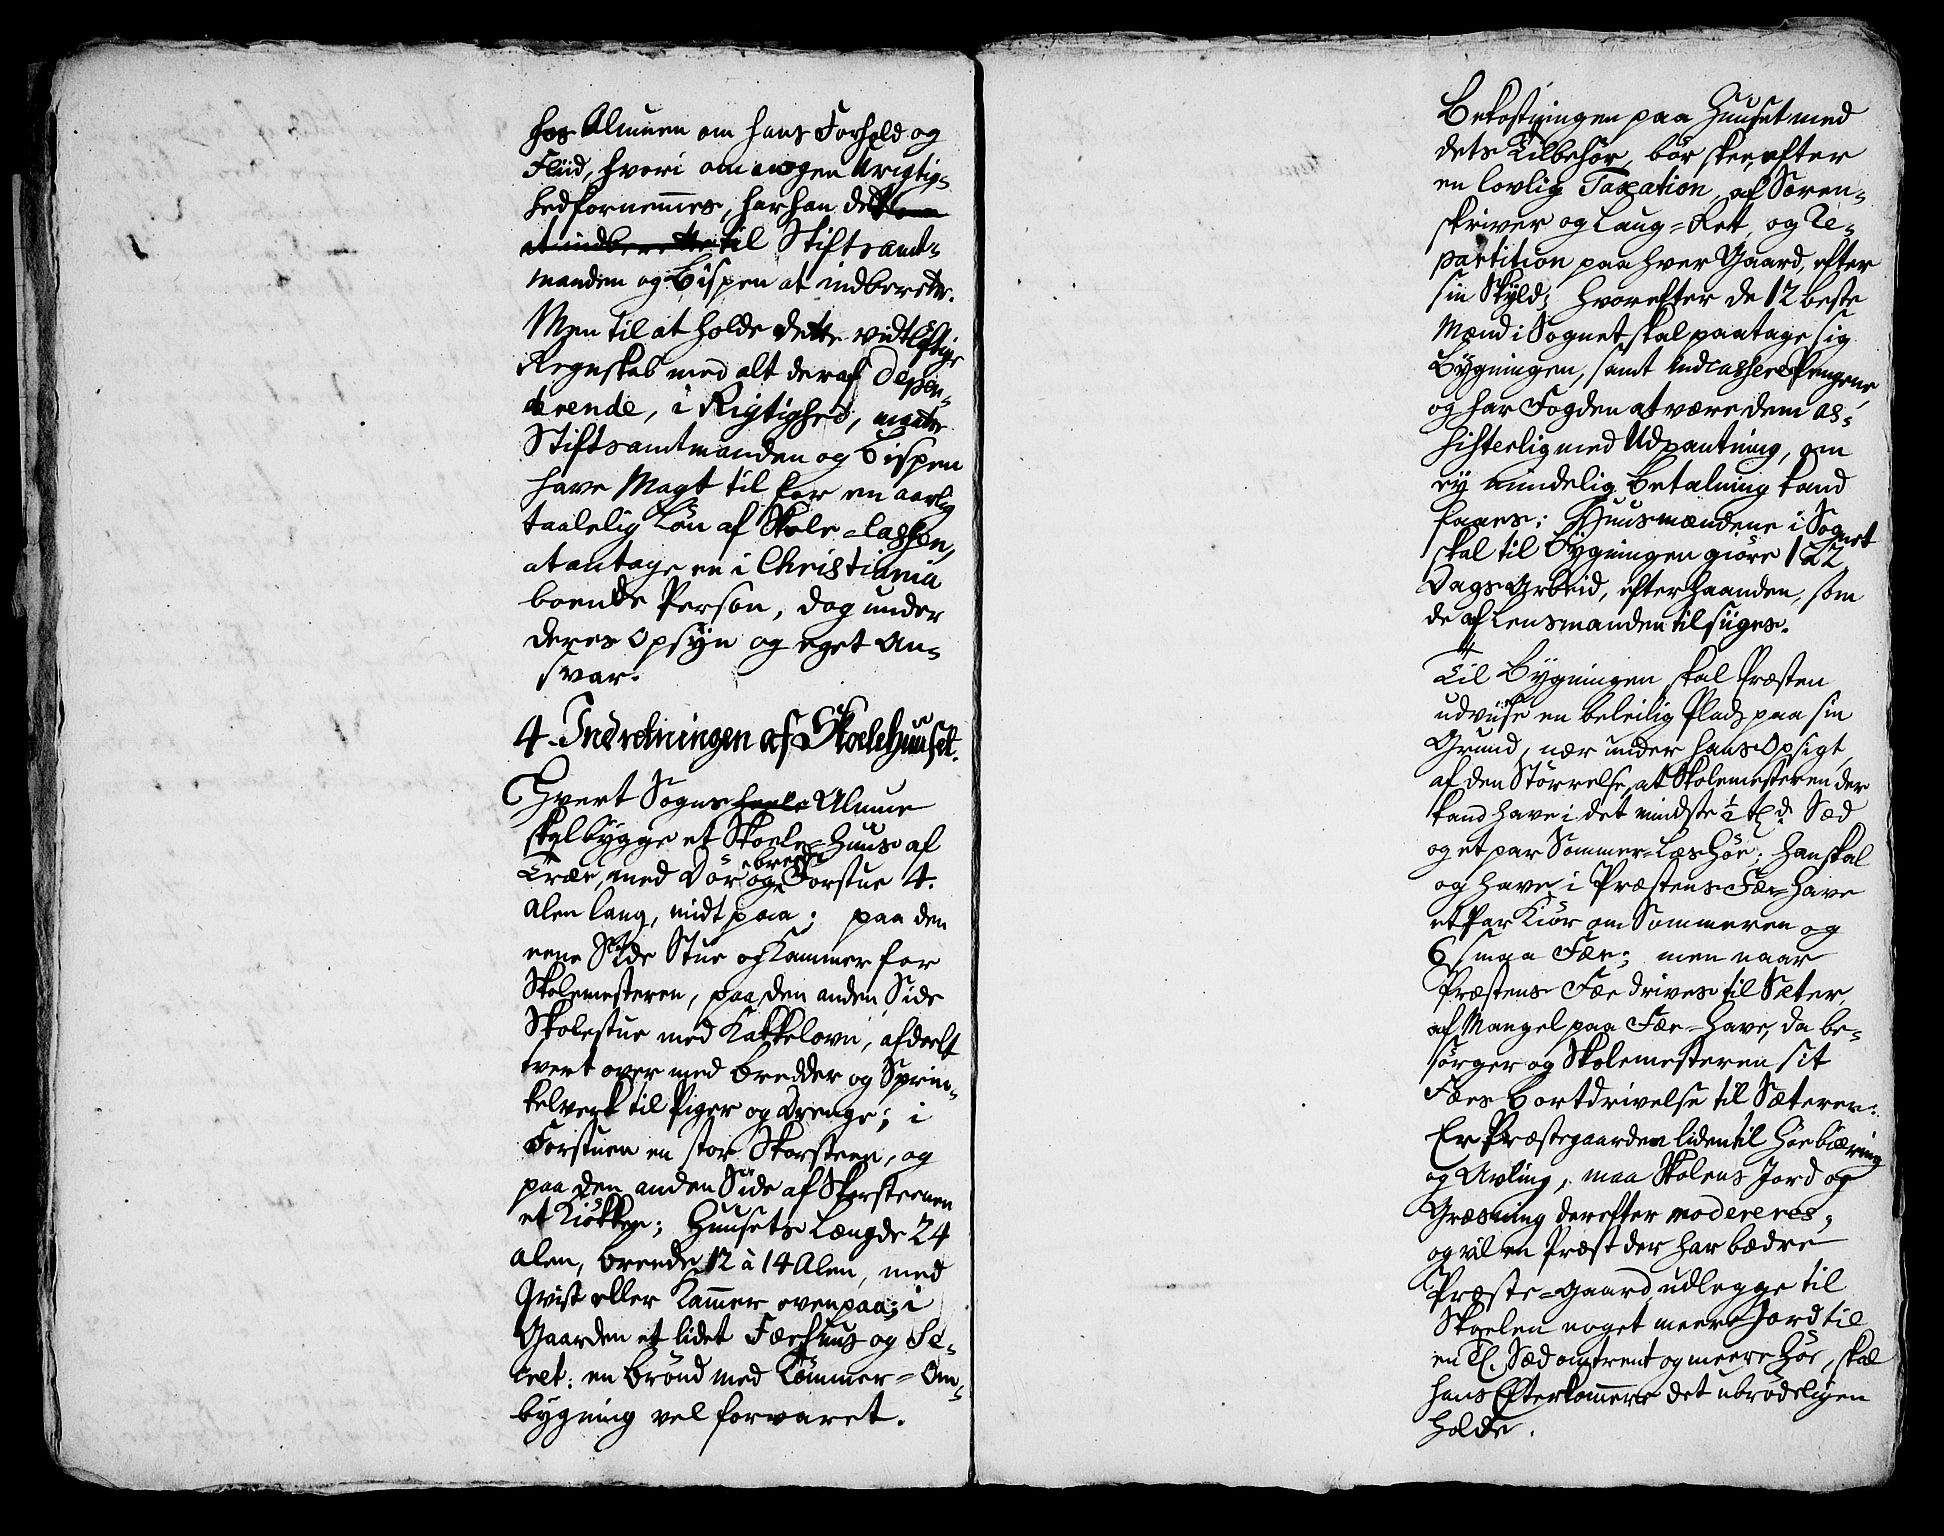 hos Almuen om hans Forhold og
Fliid, hvori om nogen Urigtig-
hed fornemmes, har han det
at indberette til Stiftsamt-
manden og Bispen at indberette.
Men til at holde dette vidtløftige
Regnskab med alt deraf depen-
derende, i Rigtighed, maatte
Stiftsamtmanden og Bispen
have Magt til for en aarlig
taalelig Løn af Skole-Cassen,
at antage en i Christiania
boende Person, dog under
deres Opsyn og eget An-
svar.
4. Indretningen af Skoelehuuset.
Hvert Sogns heele Almue
skal bygge et Skoele-Huus af
Træe, med Dør og Forstue 4.
Alen lang, midt paa; paa den
eene Side Stue og Kammer for
Skolemesteren, paa den anden Side
Skolestue med Kakkelovn, afdeelt
tvert over med bredder og Sprin-
kelverk til Piger og Drenge; i
Forstuen en stor Skorsteen, og
paa den anden Side af Skorsteenen
et Kiøkken; Huusets Længde 24
Alen, breede 12 à 14 Alen, med
Qvist eller Kammer ovenpaa; i
Gaarden et lidet Fæehuus og Se-
cret; en Brønd med Tømmer-Om-
bygning vel forvaret.
Bekostningen paa Huuset med
dets Tilbehør, bør skee efter
en lovlig Taxation, af Soren-
skriver og Laug-Ret, og Re-
partition paa hver Gaard, efter
sin Skyld; hvorefter de 12 beste
Mænd i Sognet skal paatage sig
Bygningen, samt indcassere Pengene,
og har Fogden at være dem as-
sisterlig med Udpantning, om
ey mindelig Betalning kand
faaes; Huusmændene i Sognet
skal til Bygningen giøre 1 à 2
Dags Arbeid, efterhaanden, som
de af Lensmanden tilsiiges.
Til Bygningen skal Præsten
udviise en beleilig Plads paa sin
Grund, nær under hans Opsigt,
af den Størrelse, at Skolemesteren der
kand have i det mindste ½ Td. Sæd
og et par Sommer-Læs Høe; han skal
og have i Præstens Fæe-Have
et Par Kiør om Sommeren og
6 smaa Fæe; men naar
Præstens Fæe drives til Sæter,
af Mangel paa Fæe-Have, da be-
sørger og Skolemesteren sit
Fæes bortdrivelse til Sæteren:
Er Præstegaarden liden til Høebiæring
og Avling, maa Skolens Jord og
Græsning derefter modereres;
og vil en Præst der har bædre
Præste-Gaard, udlegge til
Skoelen noget meere Jord til
en Td. Sæd omtrent og meere Høe, skal
hans Efterkommere det ubrødeligen
holde.